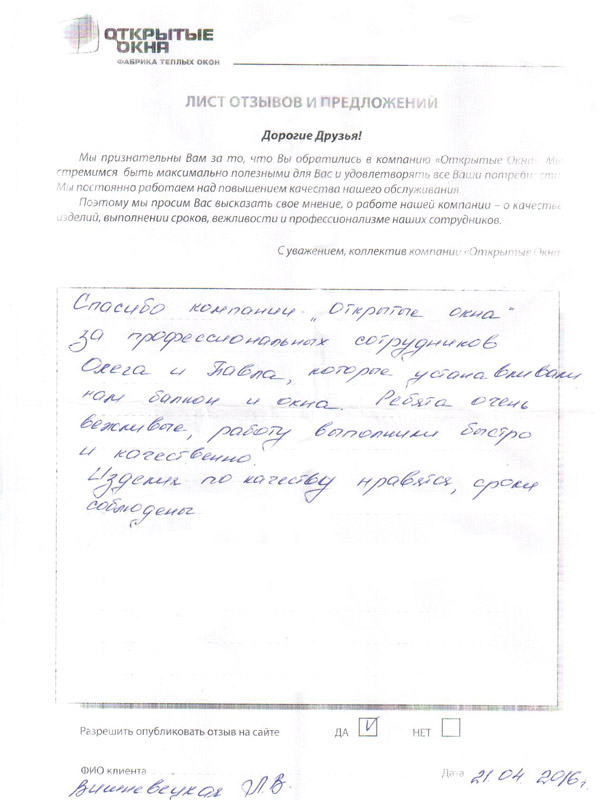 ОТКРЫТЫЕ
ОКНА
ФАБРИКА ТЕПЛЫХ ОКОН
ЛИСТ ОТЗЫВОВ И ПРЕДЛОЖЕНИЙ
Дорогие Друзья!
Мы признательны Вам за то, что Вы обратились в компанию «Открытые Окна». Мы
стремимся быть максимально полезными для Вас и удовлетворять все Ваши потребности.
Мы постоянно работаем над повышением качества нашего обслуживания.
Поэтому мы просим Вас высказать свое мнение, о работе нашей компании – о качестве
изделий, выполнении сроков, вежливости и профессионализме наших сотрудников.
С уважением, коллектив компании «Открытые Окна»
Спасибо компании „Открытые окна“
за профессиональных сотрудников
Олега и Павла, которые устанавливали
нам балкон и окна. Ребята очень
вежливые, работу выполнили быстро
и качественно.
Изделия по качеству нравятся, сроки
соблюдены
Разрешить опубликовать отзыв на сайте ДА V НЕТ
ФИО клиента Дата 21.04 2016г.
Вишневецкая Л.В.